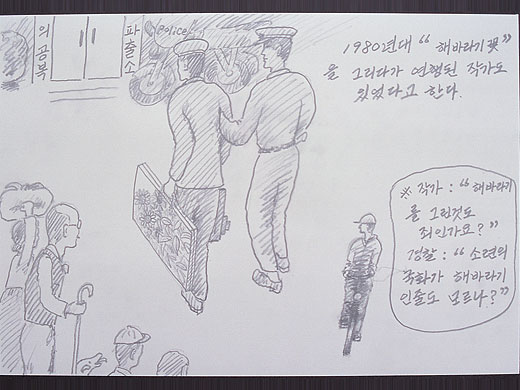 의
공
부
파
출
소
police
1980년대 " 해바라기꽃"
을 그리다가 연행된 작가도
있었다고 한다.
※ 작가 : "해바라기
를 그린것도
죄인가요?"
경찰 : " 소련의
국화가 해바라기
인줄도 모르나?"